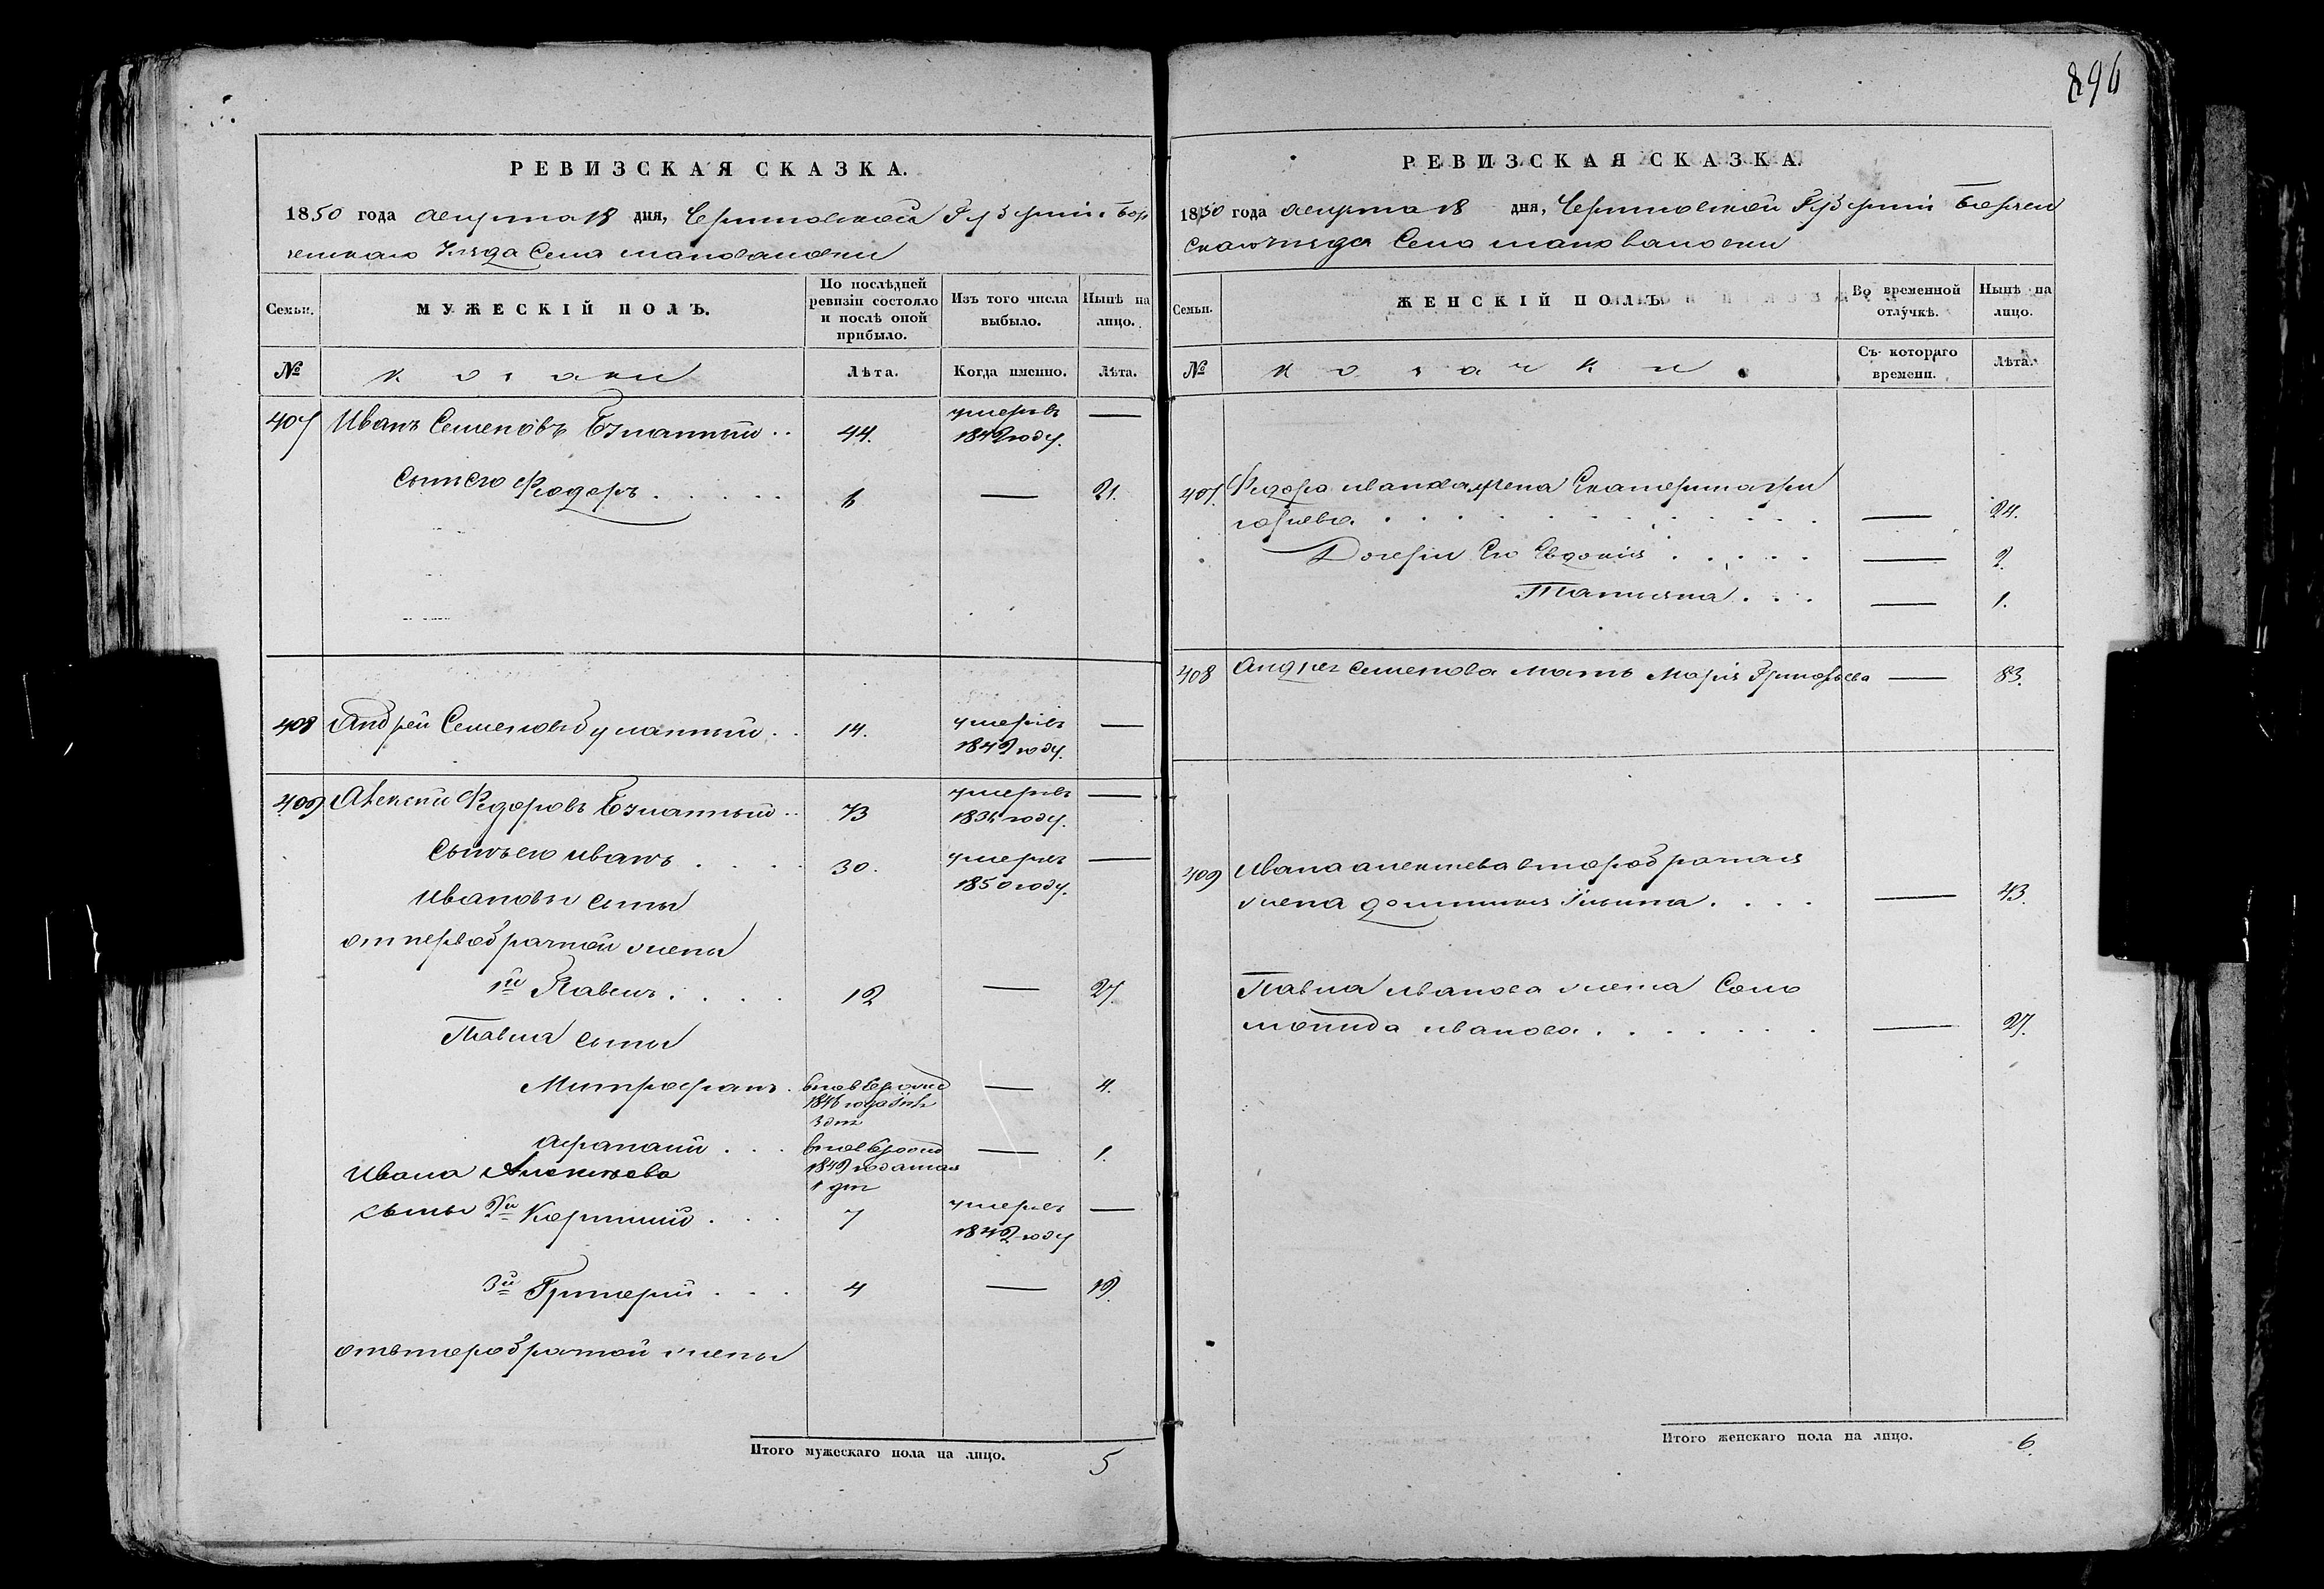 896
РЕВИЗСКАЯ СКАЗКА.
1850 года августа 18 дня, Черниговской Губернии Бор
зенскаго Уезда Села
Семьи.
МУЖЕСКІЙ ПОЛЪ.
По послѣдней ревизіи состояло и послѣ оной прибыло.
Изъ того числа выбыло.
Нынѣ на лицо.
№
козаки
Лѣта.
Когда именно.
Лѣта.
407 Иванъ Семеновъ Буланный .. 44. умеръ —
1849 году.
сынъ его Федоръ . . . . . 6 — 21.
408 Андрей Семеновъ Буланный . . 14. умеръ —
1849 году.
409 Алексей Федоровъ Буланный .. 73 умеръ —
1836 году.
сынъ его Иванъ . . . . 30. умеръ —
1850 году.
Ивановы сыны
от первобрачной жены
1й Павелъ . . . . 12 — 27.
Павла сыны
Митрофанъ . — 4.
1846 года
Афанасий . . . — 1.
Ивана Алексеева
1849 года
сыны 2й Корнилий . . . 7 умеръ —
1842 году
3й Григорий . . . 4 — 19.
отъ второбрачной жены
Итого мужескаго пола на лицо. 5
РЕВИЗСКАЯ СКАЗКА.
1850 года августа 18 дня, Черниговской Губернии Борзен
скаго уезда Села
Семьи.
ЖЕНСКІЙ ПОЛЪ.
Во временной отлучкѣ.
Нынѣ на лицо.
№
козачки
Съ котораго времени.
Лѣта.
407. Федора Иванова жена Екатерина Гри
горьева . . . . . . . . . — 24.
Дочери Его Евдокия . . . . . — 2.
Татияна . . . — 1.
408 Андрея Семенова мать Мария Григорьева — 83.
409 Ивана Алексеева второбрачная
жена Домникия Ильина . . . . — 43.
Павла Иванова жена Соло
монида Иванова . . . . . . . — 27.
Итого женскаго пола на лицо. 6.